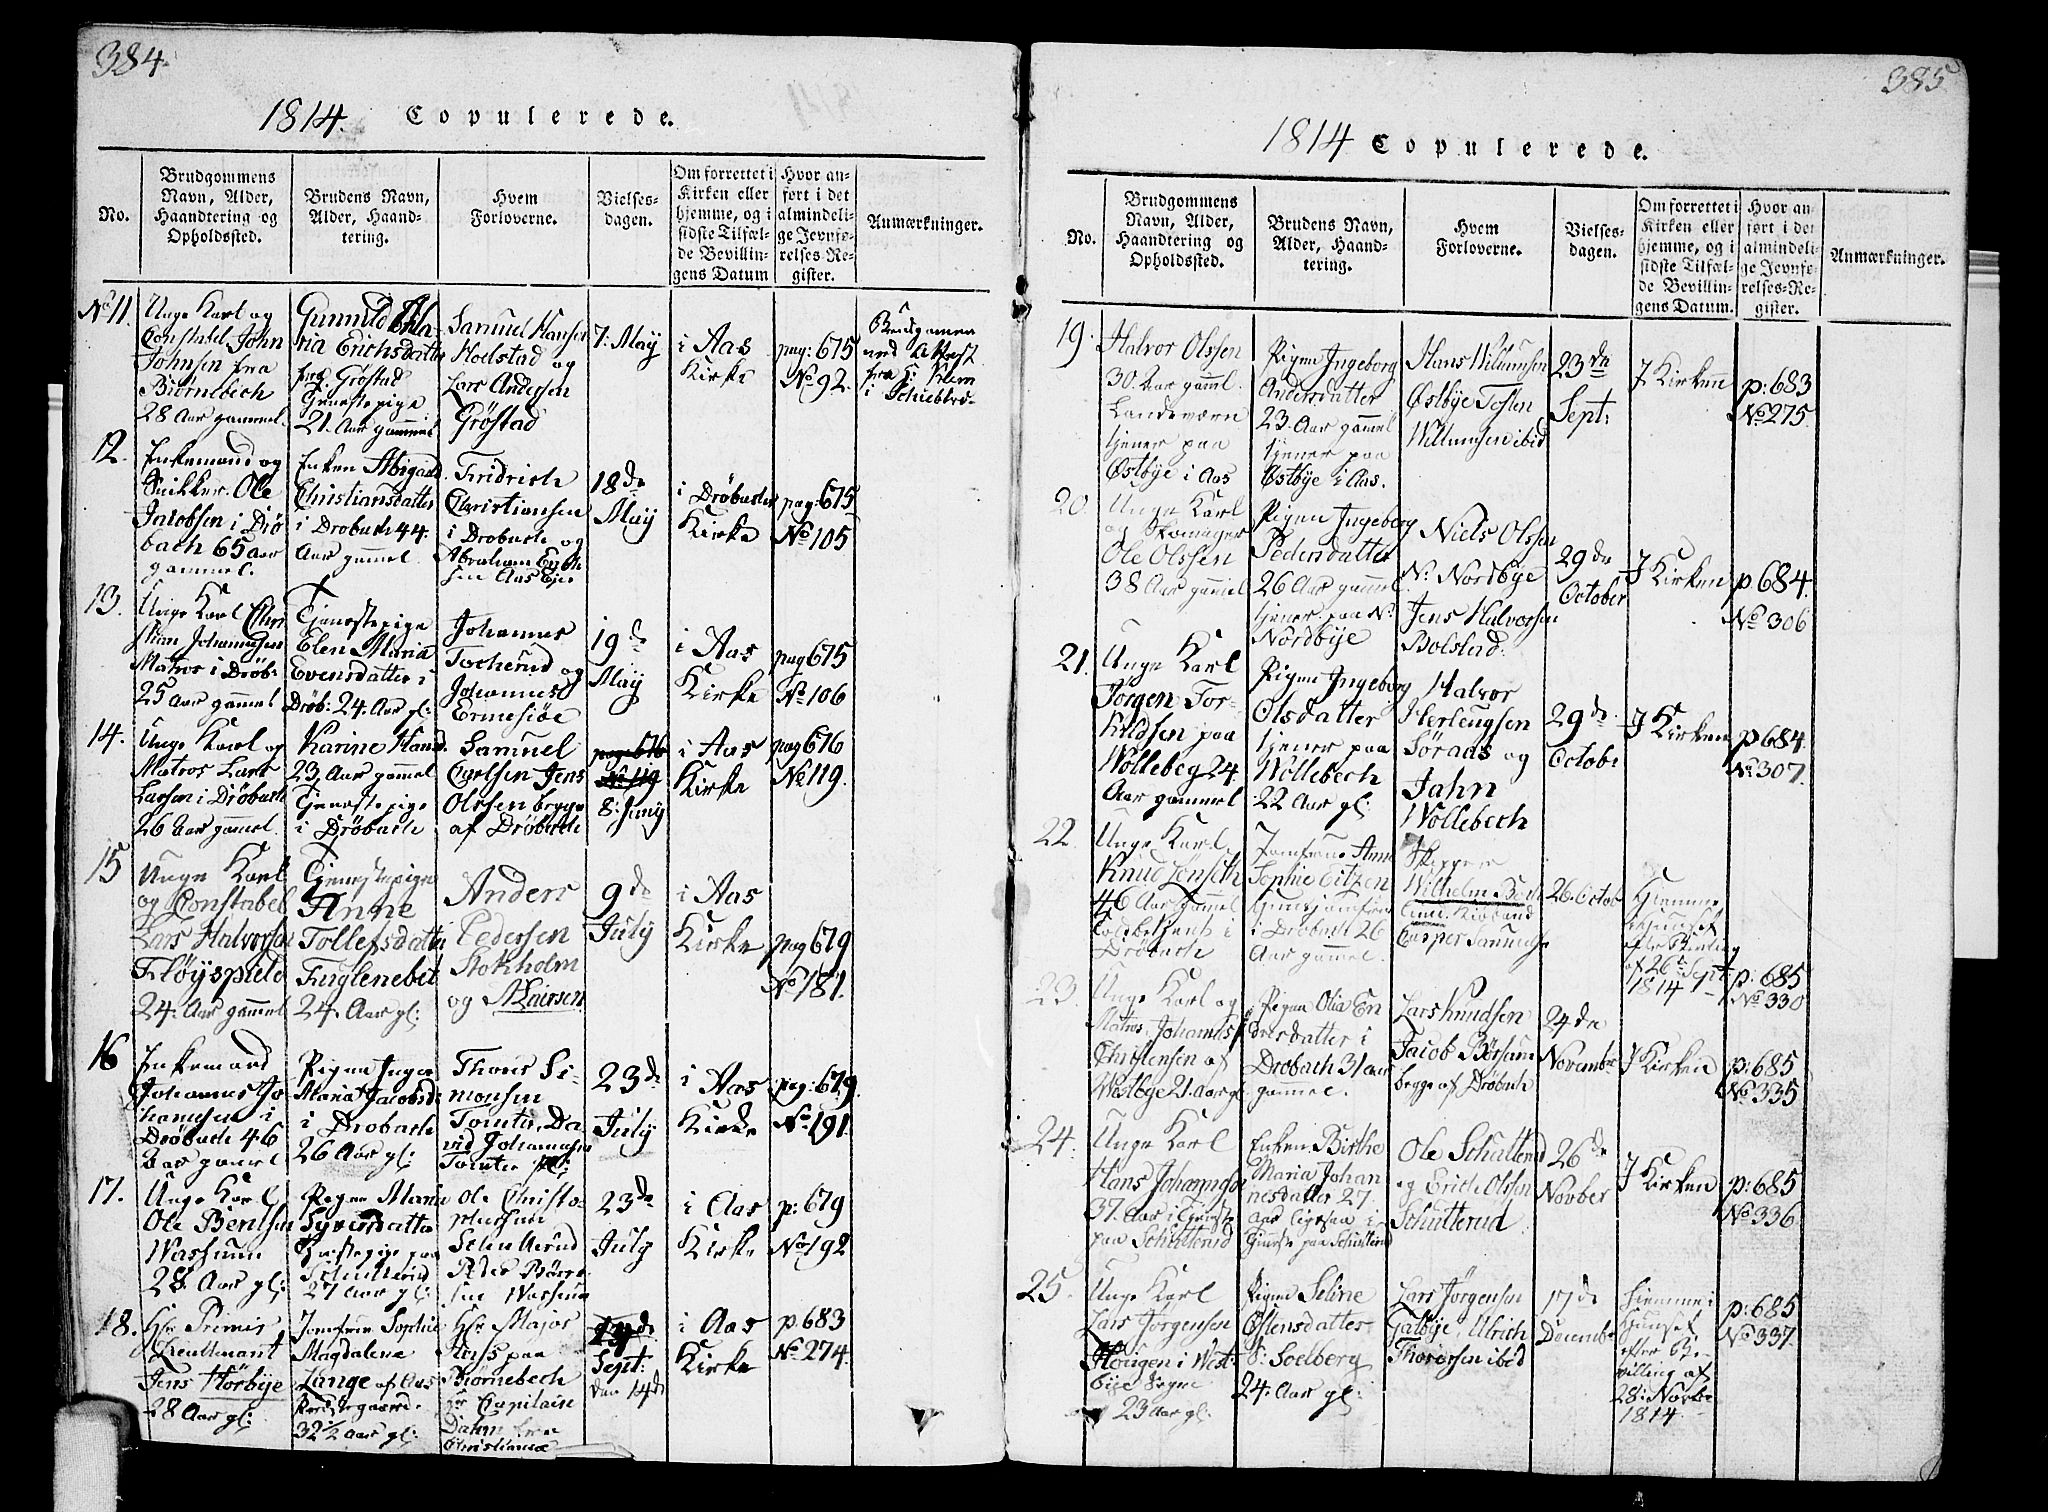 384.
1814. Copulerede.
No.
Brudgommens
Navn, Alder,
Haandtering og
Opholdssted.
Brudens Navn,
Alder, Haand-
tering.
Hvem
Forloverne.
Vielses-
dagen.
Om forrettet i
Kirken eller
hjemme, og i
sidste Tilfæl-
de Bevillin-
gens Datum
Hvor an-
ført i det
almindeli-
ge Jevnfø-
relses-Re-
gister.
Anmærkninger.
No 11.
Unge Karl og
Constabel John
Johnsen fra
Biørnebech
28 Aar gammel.
Gunnild Ma-
ria Erichsdatter
Grøstad
Tjenestepige
21. Aar gammel
Samuel Hansen
Holstad og
Lars Andersen
Grøstad
7: May
i Aas
Kirke
pag: 675
No 92.
Brudgomen
med Attest
fra
i
12.
Enkemand og
Snikker Ole
Jacobsen i Drø
bach 65 Aar
gammel.
Enken Abigael
Christiansdatter
i Drobach 44
Aar gammel
Fridrich
Christiansen
i Drobach og
Abraham Erich
sen Aas Eje
18de
May
i Drøbachs
Kirke
pag: 675
No 105
13.
Unge Karl Chri
stian Johannesen
Matros i Drøb:
25 Aar gammel
Tjenestepige
Elen Maria
Evensdatter i
Drøb: 24. Aar gl:
Johannes
Tocherud og
Johannes
Ermesiøe
19de
May
i Aas
Kirke
pag 675
No 106
14.
Unge Karl og
Matros Lars
Larsen i Drøbach
26 Aar gammel.
Karine Hansd.
23 Aar gammel
Tjenestepige
i Drøbach
Samuel
Carlsen Jens
Olssen begge
af Drøbach
pag 676
No 119
8: Juny
i Aas
Kirke
pag 676
No 119.
15
Unge Karl
og Constabel
Lars Halvorsen
Fløyspield
24: Aar gammel
Tjenestepige
Anne
Tollefsdatter
Fuglenebet
24. Aar gl:
Anders
Pedersen
Stokholm
og N Lairsen
9de
July
i Aas
Kirke
pag 679
No 181.
16
Enkemand
Johannes Jo
hannesen i
Drøbach 46
Aar gammel
Pigen Inger
Maria Jacobsd:
i Drobach
26 Aar gl:
Thoris Si-
monsen
Tomter, Da
vid Johannesen
Tomter
23de
July
i Aas
Kirke
pag: 679.
No 191.
17.
Unge Karl
Ole Bentsen
Wassum
28. Aar gl:
Pigen Maria
Syversdatter
Tjenestepige paa
Schutterud
27 Aar gl:
Ole Christo-
phersen
Schutterud
Peder Børre
sen Wassum
23de
July
i Aas
Kirke
p: 679
No 192
18.
Hr: Premier
Lieutenant
Jens Hørbye
28 Aar gl:
Jomfrue Sophie
Magdalena
Lange af Aas
Præstegaard
32 1/2 Aar gl:
Hr: Major
Huss paa
Biørnebech
Hr Capitain
Dahm fra
Christiania
Sept:
den 14de
i Aas
Kirke
p: 683
No 274.
385
1814 Copulerede.
No.
Brudgommens
Navn, Alder,
Haandtering og
Opholdssted.
Brudens Navn,
Alder, Haand-
tering.
Hvem
Forloverne.
Vielses-
dagen.
Om forrettet i
Kirken eller
hjemme, og i
sidste Tilfæl-
de Bevillin-
gens Datum.
Hvor an-
ført i det
almindeli-
ge Jevnfø-
relses-Re-
gister.
Anmærkninger.
19.
Halvor Olssen
30. Aar gammel.
Landeværn
tjener paa
Østbye i Aas
Pigen Ingeborg
Andersdatter
23. Aar gammel
tjener paa
Østbye i Aas.
Hans Willumsen
Østbye Tosten
Willumsen ibid
23de
Sept:
J Kirken
p: 683
No 275.
20.
Unge Karl
og Skomager
Ole Olssen
38 Aar gammel
Pigen Ingeborg
Pedersdatter
26 Aar gammel
tjener paa N:
Nordbye
Niels Olssen
N: Nordbye
Jens Halvorsen
Bolstad.
29de
October
J Kirken
p 684.
No 306
21.
Unge Karl
Jørgen Tor-
kildsen paa
Wolleberg 24
Aar gammel
Pigen Ingeborg
Olsdatter
tjener paa
Wollebech
22 Aar gl:
Halvor
Herleugsen
Søraas og
Jahn
Wollebech
29de
October
J Kirken
p 684.
No 307.
22
Unge Karl
Knud Lønseth
46 Aar gammel
i
Drøbach
Jomfrue Anne
Sophie Eitzen
i Drobach 26
Aar gammel.
Skipper
Wilhelm
Casper Samuelsen
26. Octob
Hjemme
i Huuset
efter Bevilling
af 26 Sept
1814
p: 685
No 330
23.
Unge Karl og
Matros Johannes
Christensen af
Westbye 21. Aar gl.
Pigen Olia En
dresdatter i
Drobach 31 aar
gammel.
Lars Knudsen
Jacob Børsum
begge af Drøbach
24de
Novembr
J Kirken
p: 685
No 335
24.
Unge Karl
Hans Johannesen
37. Aar i Tjeneste
paa Schutterud
Enken Birthe
Maria Johan
nesdatter 27
Aar
Tjeneste paa Schutterud
Ole Schutterud
og Erich Olssen
Schutterud
26de
Novber
J Kirken
p: 685
No 336
25.
Unge Karl
Lars Jørgensen
Hougen i West-
bye Sogne
23 Aar gl:
Pigen Seline
Østensdatter
S: Soelberg
24. Aar gl:
Lars Jørgensen
Galbye, Ulrich
Thoresen ibid
17de
Decembr
Hiemme i
Huuset
efter Be-
villing af
28: Novbr
1814.
p: 685
No 337